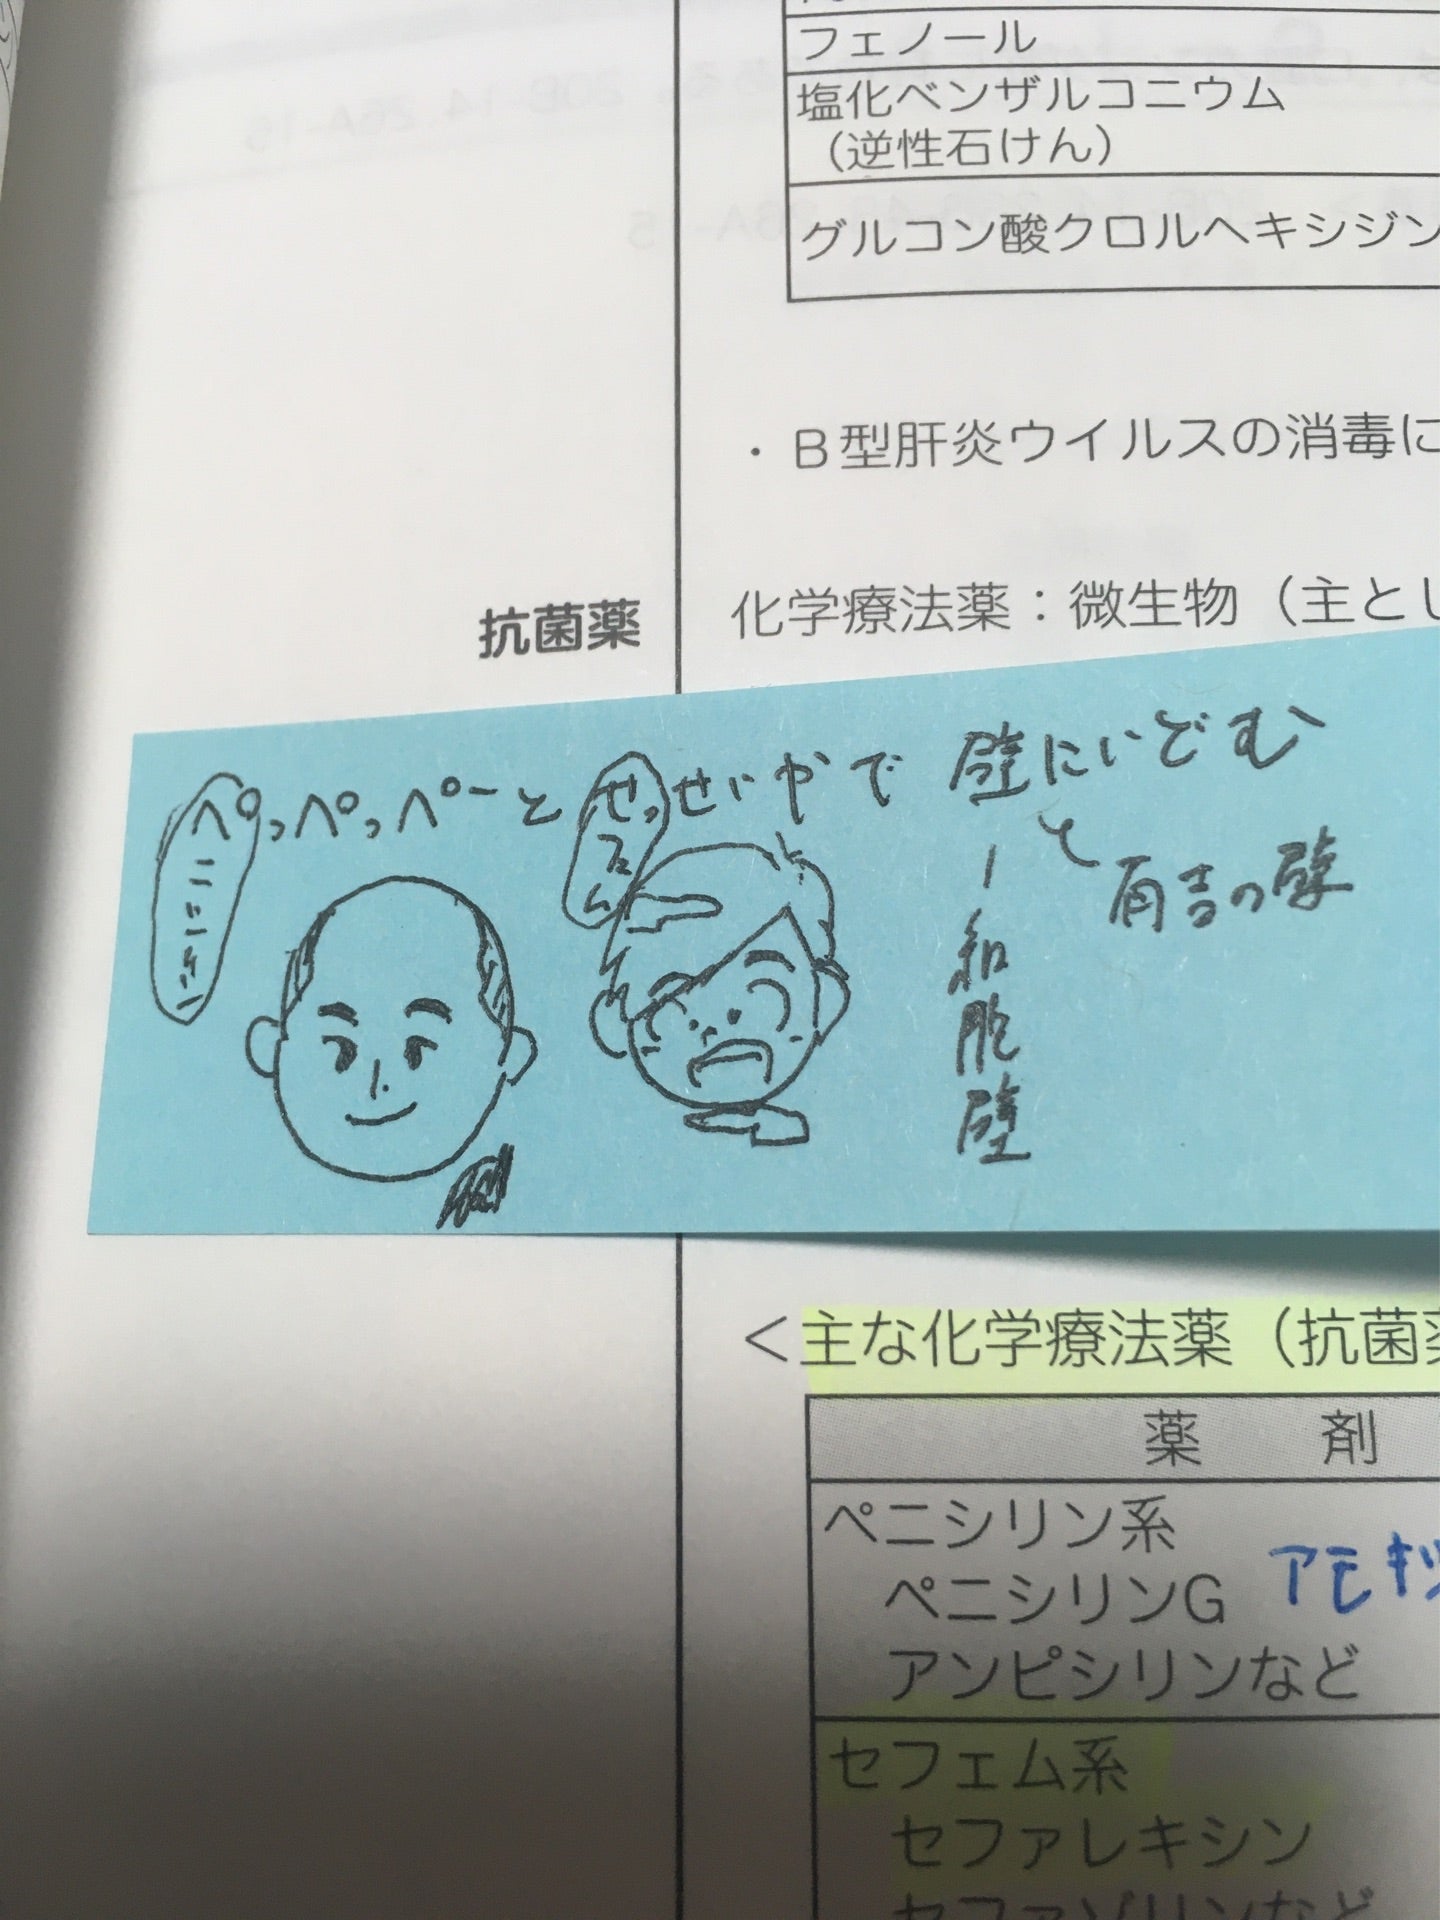 フェノール
塩化ベンザルコニウム
（逆性石けん）
グルコン酸クロルヘキシジン
・B型肝炎ウイルスの消毒に
抗菌薬
化学療法薬：微生物（主とし
ぺっぺっぺーと せっせいやで 壁にいどむ
ペニシリン
セフェム
と 有吉の壁
細胞壁
＜主な化学療法薬（抗菌薬
薬　剤
ペニシリン系
ペニシリンG
アモキシ
アンピシリンなど
セフェム系
セファレキシン
セファゾリンなど